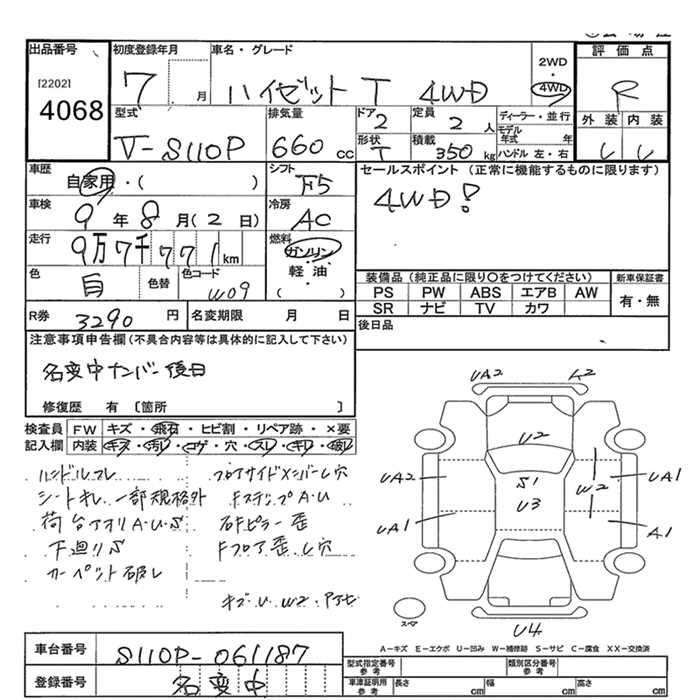 出品番号
[2202]
4068
初度登録年月
7 月
車名・グレード
ハイゼット T 4WD
2WD
・
4WD
評価点
R
型式
V-S110P
排気量
660 cc
ドア
2
形状
T
定員
2 人
積載
350 kg
ディーラー・並行
モデル年式 年
ハンドル 左・右
外装 内装
車歴
自家用・( )
シフト
F5
セールスポイント (正常に機能するものに限ります)
4WD!
車検
9 年 8 月 (2 日)
冷房
AC
走行
9万7千771 km
燃料
ガソリン
・
軽油
( )
色
白
色替
色コード
W09
装備品 (純正品に限り〇をつけてください)
PS PW ABS エアB AW
SR ナビ TV カワ
新車保証書
有・無
R券 3290 円
名変期限 月 日
後日品
注意事項申告欄 (不具合内容等は具体的に記入して下さい)
名変中ナンバー後日
修復歴 有 〔箇所 〕
検査員
記入欄
FW キズ・飛石・ヒビ割・リペア跡・×要
内装 キズ・汚レ・コゲ・穴・スレ・キレ・破レ
ハンドルスレ
シートキレ 一部規格外
荷台アオリA・U・S
下廻りS
カーペット破レ
フロアサイドメンバーし穴
FステップA・U
右Fピラー歪
Fフロア歪、し穴
キズ・U W2・Pアセ
UA2
A2
U2
S1
U3
UA2
UA1
W2
UA1
A1
U4
スペア
A-キズ E-エクボ U-凹み W-補修跡 S-サビ C-腐食 XX-交換済
車台番号
S110P-061187
登録番号
名変中
型式指定番号
参考
類別区分番号
参考
車津証明用
参考
長さ cm
幅 cm
高さ cm